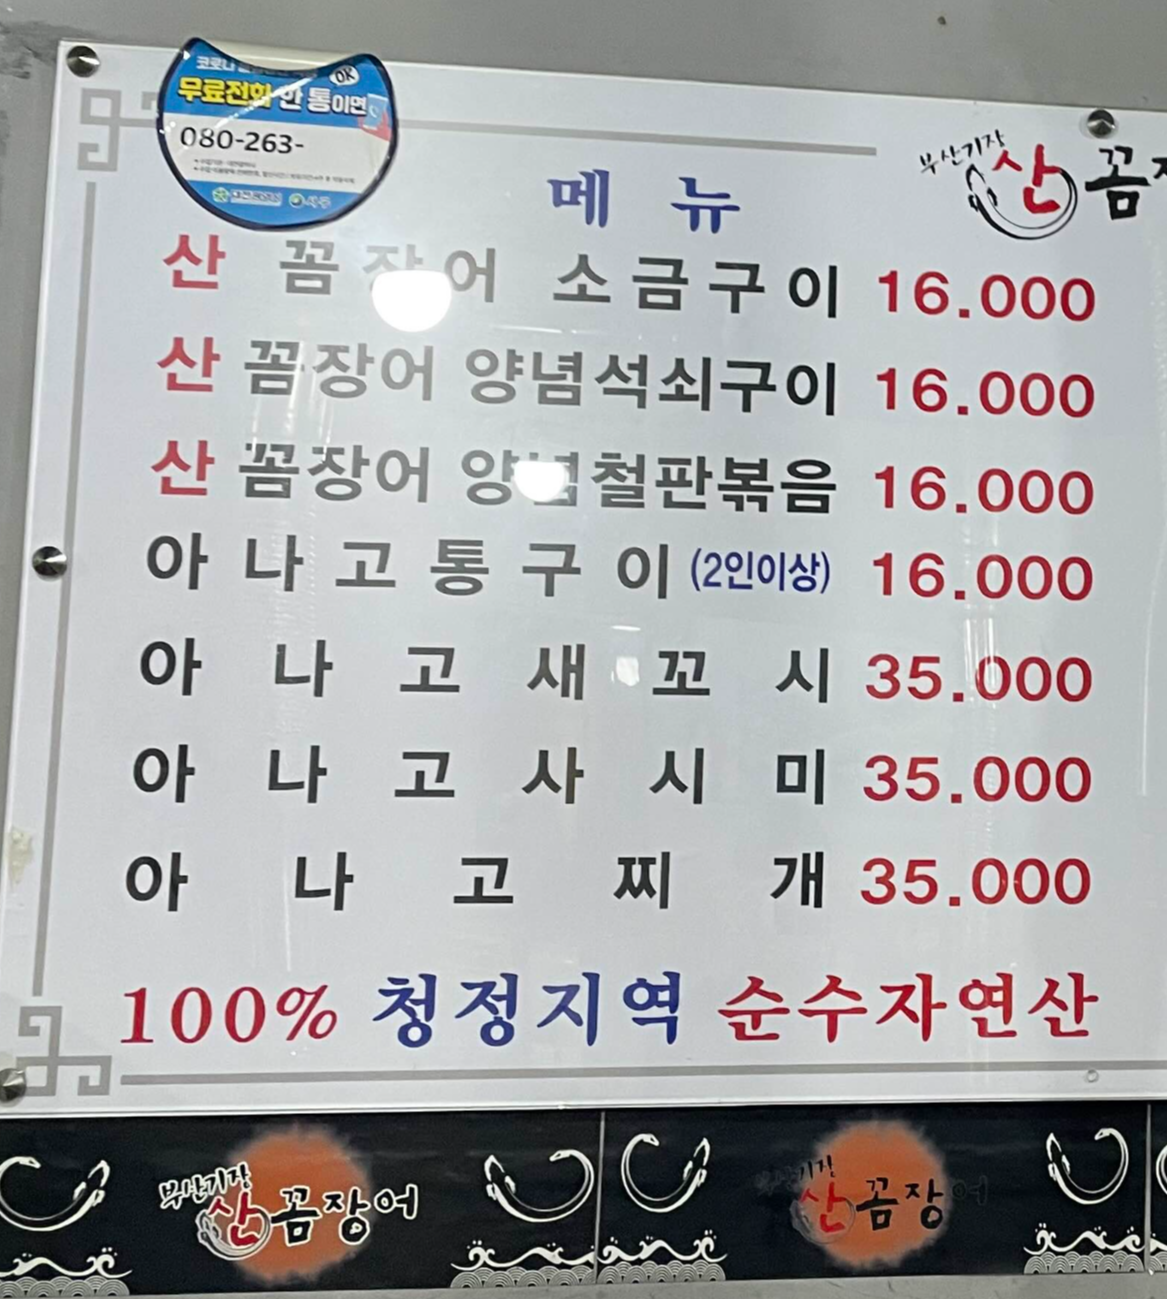 무료전화 한 통이면
OK
080-263-
메 뉴
부산기장 산 꼼
산 꼼장어 소금구이 16.000
산 꼼장어 양념석쇠구이 16.000
산 꼼장어 양념철판볶음 16.000
아나고통구이 (2인이상) 16.000
아나고새꼬시 35.000
아나고사시미 35.000
아나고찌개 35.000
100% 청정지역 순수자연산
부산기장 산꼼장어
부산기장 산꼼장어